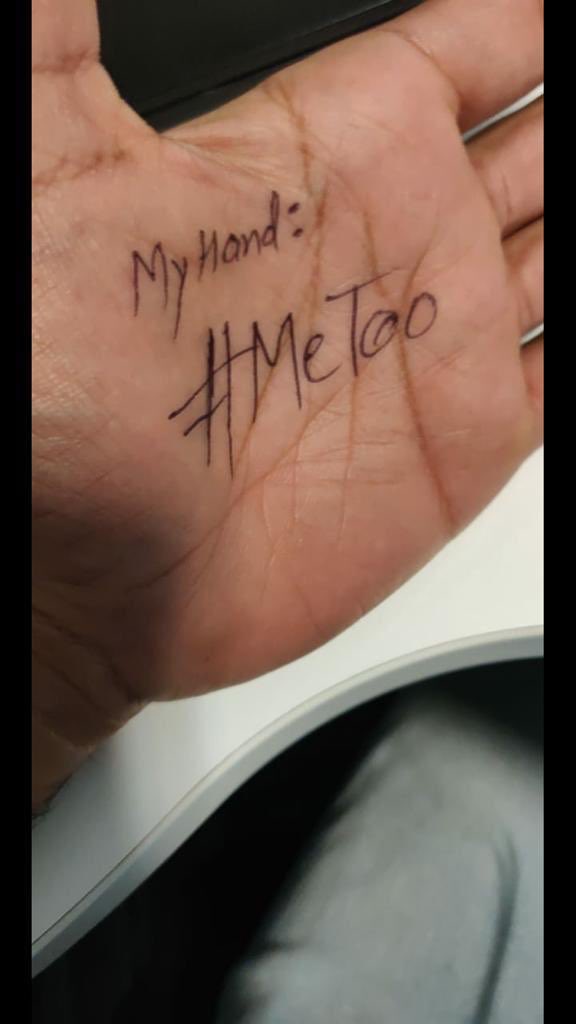 My Hand:
#MeToo